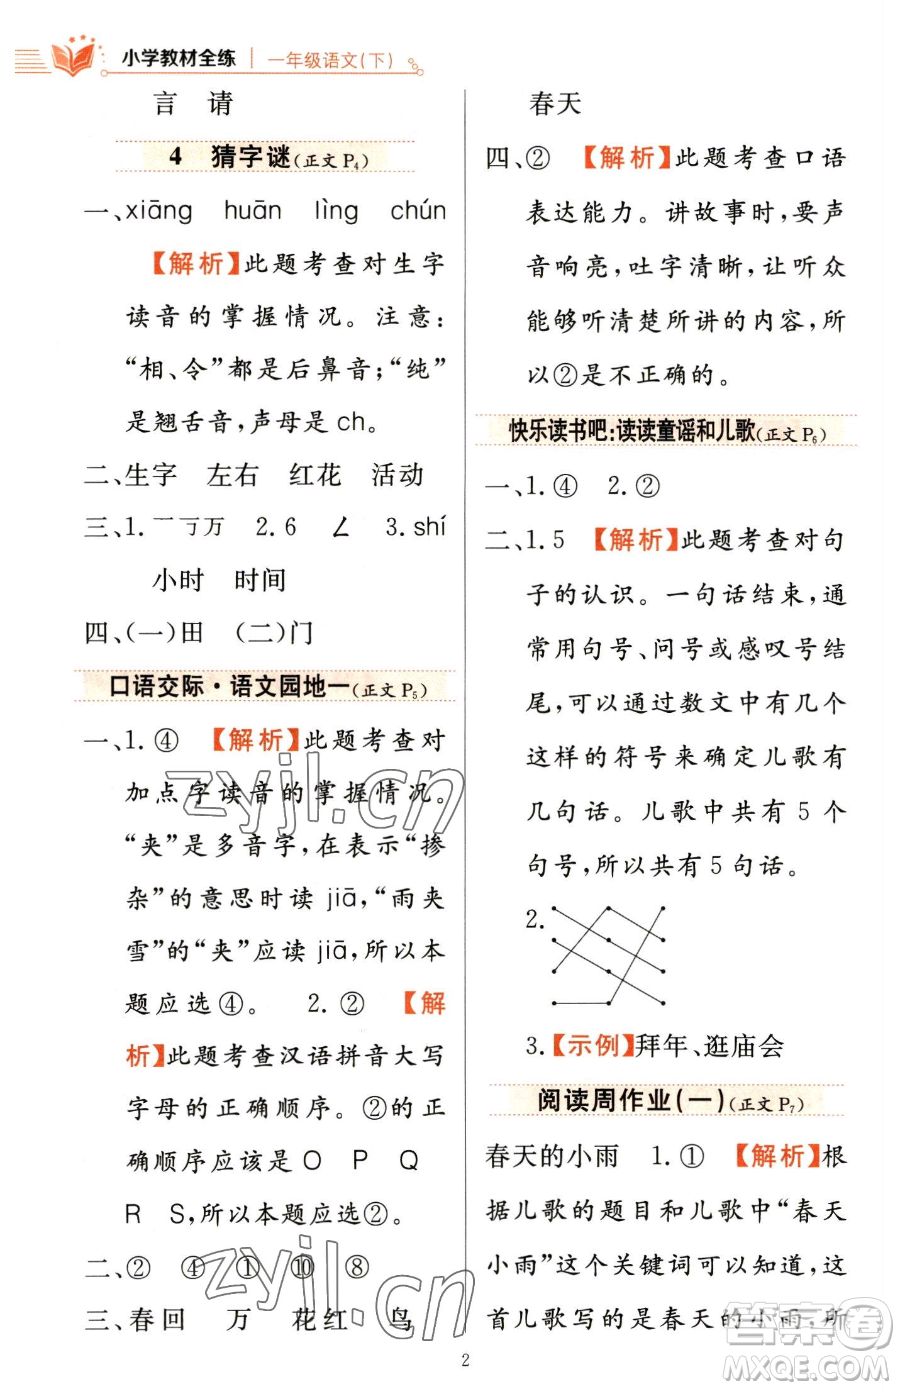 小学教材全练 一年级语文(下)
言 请
4 猜字谜(正文 P₄)
一、xiāng huān lìng chún
【解析】此题考查对生字
读音的掌握情况。注意：
“相、令”都是后鼻音；“纯”
是翘舌音，声母是 ch。
二、生字 左右 红花 活动
三、1. 一 丆 万 2. 6 ㄥ 3. shí
小时 时间
四、(一)田 (二)门
口语交际·语文园地一(正文 P₅)
一、1. ④ 【解析】此题考查对
加点字读音的掌握情况。
“夹”是多音字，在表示“掺
杂”的意思时读 jiā，“雨夹
雪”的“夹”应读 jiā，所以本
题应选④。 2. ② 【解
析】此题考查汉语拼音大写
字母的正确顺序。②的正
确顺序应该是 O P Q
R S，所以本题应选②。
二、② ④ ① ⑩ ⑧
三、春回 万 花红 鸟
春天
四、② 【解析】此题考查口语
表达能力。讲故事时，要声
音响亮，吐字清晰，让听众
能够听清楚所讲的内容，所
以②是不正确的。
快乐读书吧：读读童谣和儿歌(正文 P₆)
一、1. ④ 2. ②
二、1. 5 【解析】此题考查对句
子的认识。一句话结束，通
常用句号、问号或感叹号结
尾，可以通过数文中有几个
这样的符号来确定儿歌有
几句话。儿歌中共有 5 个
句号，所以共有 5 句话。
2.
3.【示例】拜年、逛庙会
阅读周作业(一)(正文 P₇)
春天的小雨 1. ① 【解析】根
据儿歌的题目和儿歌中“春天
小雨”这个关键词可以知道，这
首儿歌写的是春天的小雨，所
2
zyjl.cn
zyjl.cn
答案圈
MXQE.COM